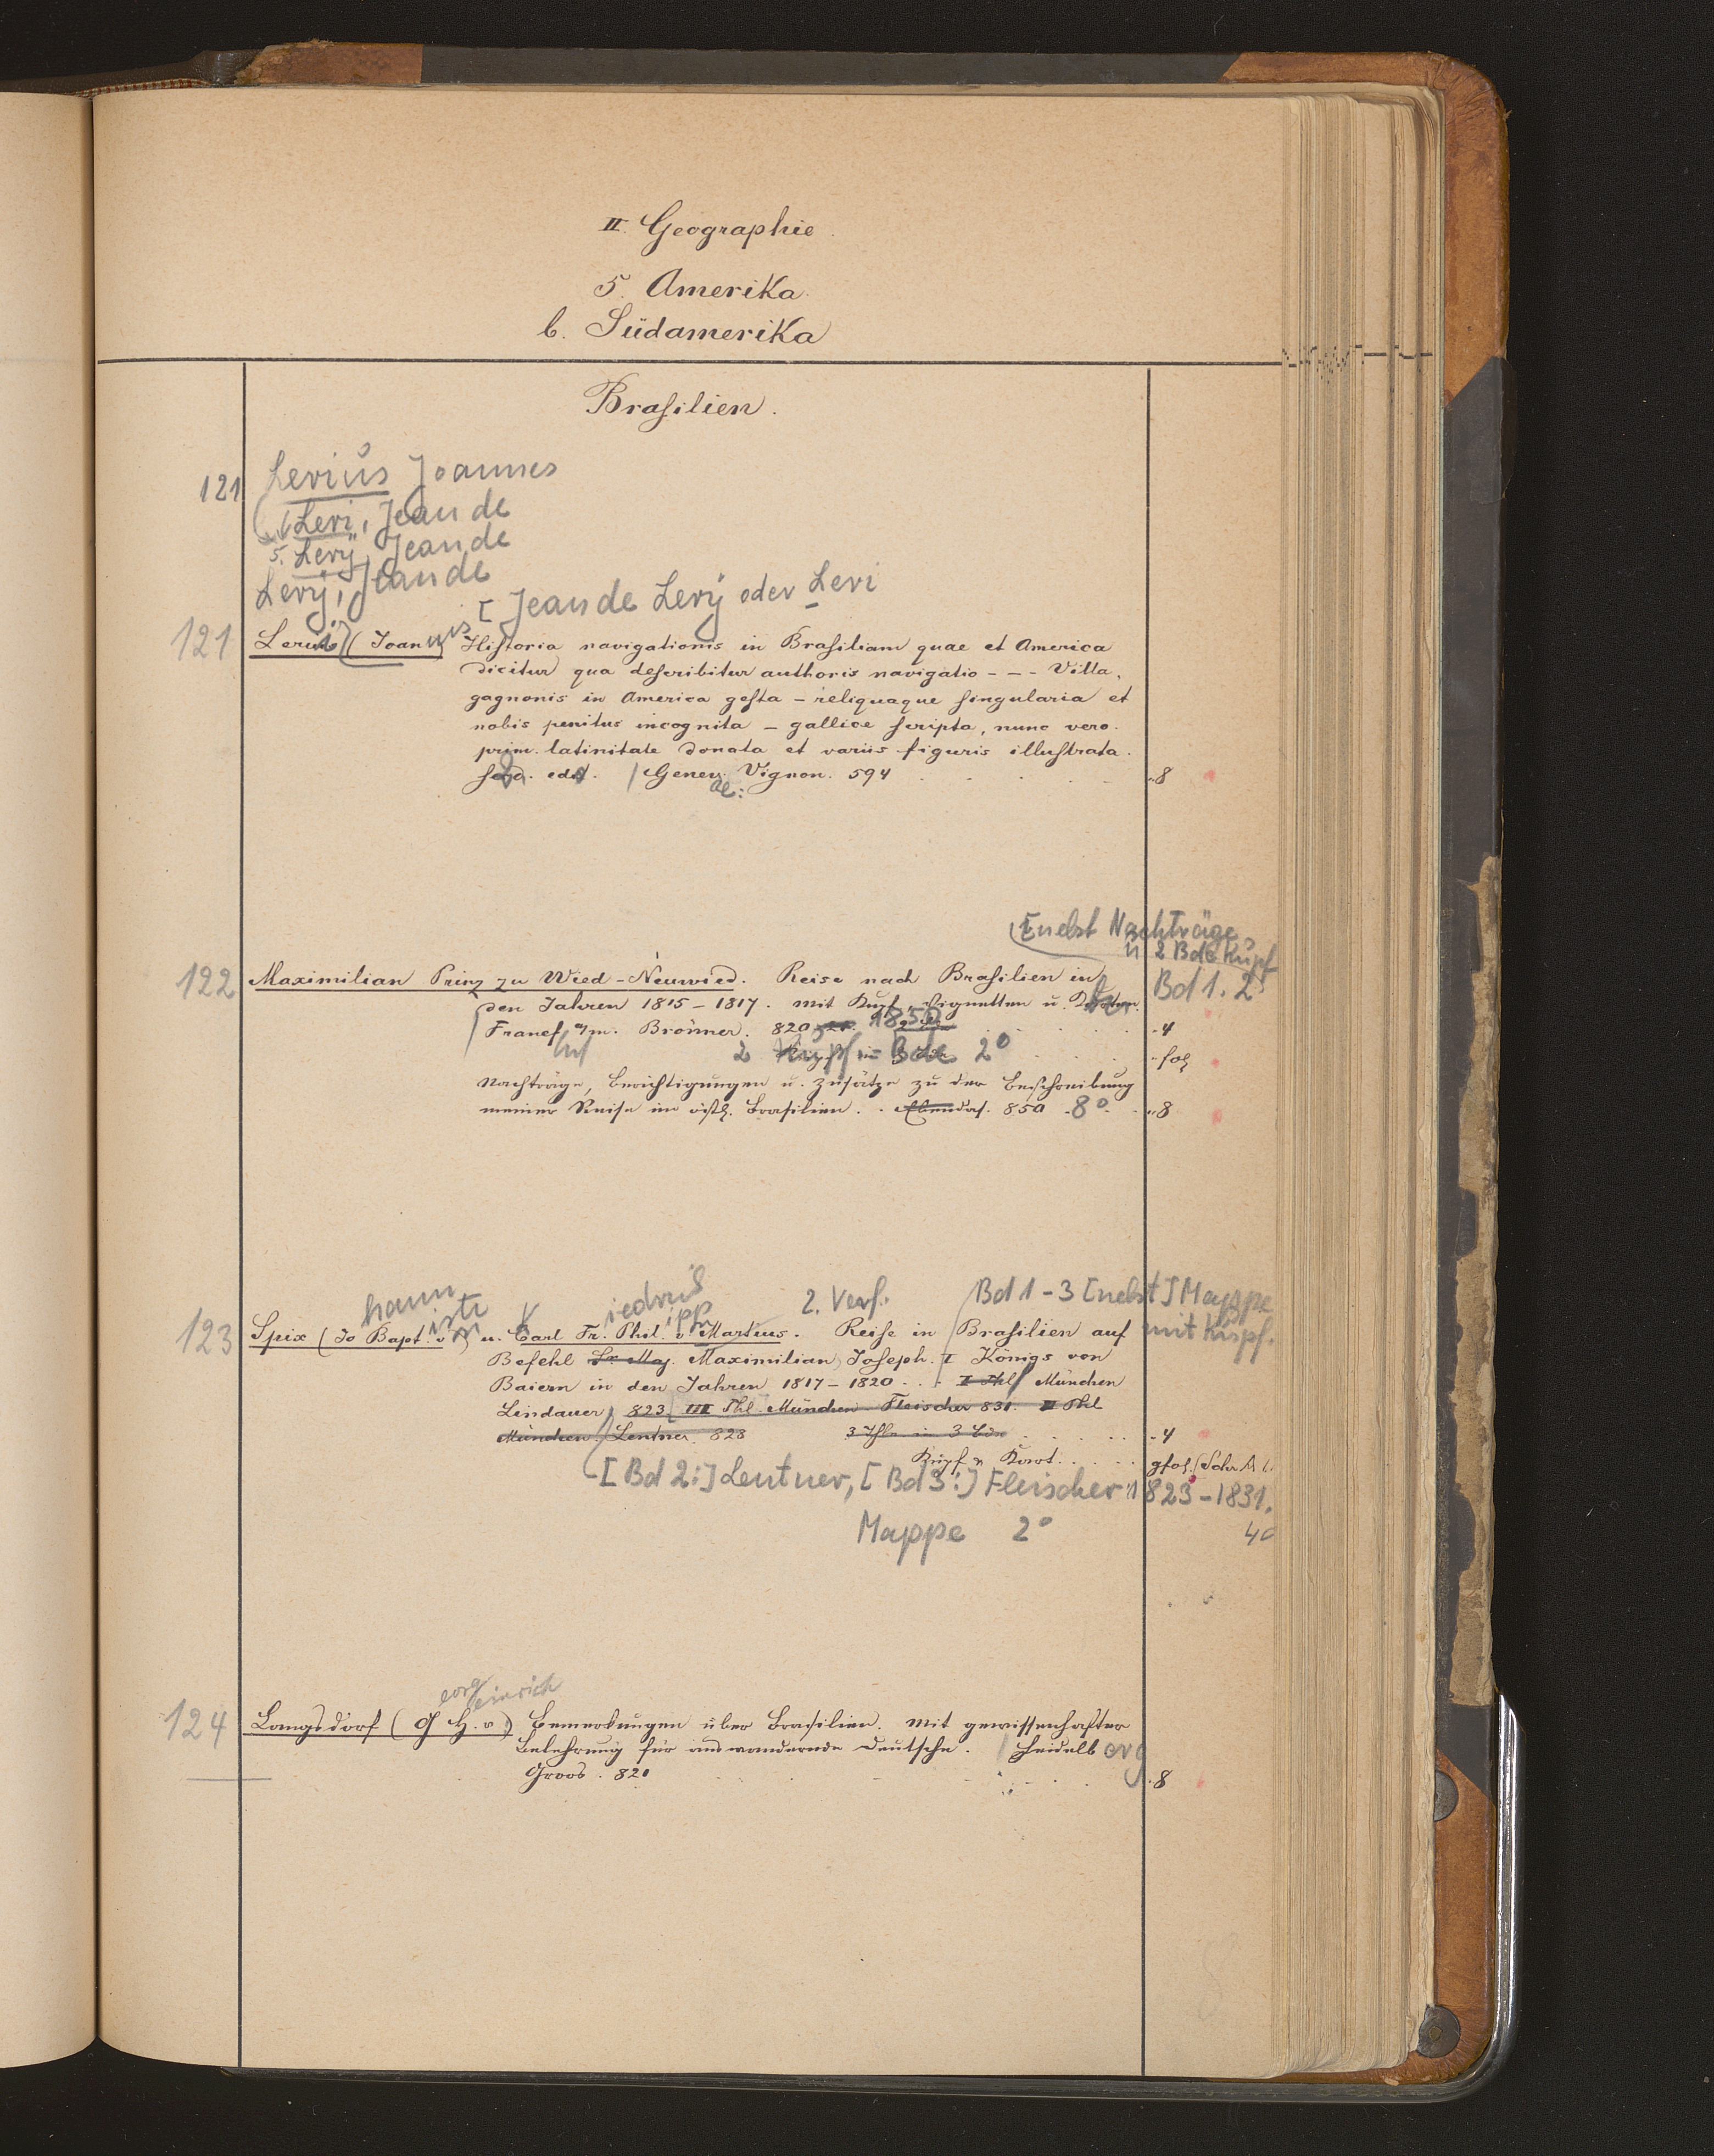 II. Geographie.
5. Amerika.
b. Südamerika
Brasilien.
121 Lerius Joannes
Leri, Jean de
s. Lerÿ, Jean de
Lerÿ, Jean de
[Jean de Lerÿ oder Leri
121 Lerii (Joannis Historia navigationis in Brasiliam quae et America
dicitur qua describitur authoris navigatio - - - Villa,
gagnonis in America gesta - reliquaque singularia et
nobis penitus incognita - gallice scripta, nunc vero.
prim. latinitate donata et variis figuris illustrata.
edit. Genev. Vignon. 594 8
ae:
[nebst Nachträge
u. 2 Bde Kupf
122 Maximilian Prinz zu Wied-Neuwied. Reise nach Brasilien in Bd 1. 2
den Jahren 1815-1817. mit Kupf. Vignetten u. Karten
Francf a/m. Brönner. 820 1850 4
2 Kupf = Bde 2° fol
Nachträge, Berichtigungen u. Zusätze zu der Beschreibung
meiner Reise im östl. Brasilien. Ebendas. 850 8° 8
hann isti iedrich ipp 2. Verf. Bd 1-3 [nebst] Mappe
123 Spix (Jo Bapt. v) u. Carl Fr. Phil. v Martius. Reise in Brasilien auf mit Kupf.
Befehl Sr. Maj. Maximilian Joseph. I Königs von
Baiern in den Jahren 1817-1820 . . . I Thl München
Lindauer, 823 III Thl. München Fleischer 831. II Thl
München. Lentner. 828 3 Thle in 3 Bde 4
Kupf u Kart. gfol.
[Bd 2:] Lentner, [Bd 3:] Fleischer 1823-1831.
4°
Mappe 2°
eorg einrich
124 Langsdorf (G H. v.) Bemerkungen über Brasilien. Mit gewissenhafter
Belehrung für auswandernde Deutsche. Heidelberg
Groos. 821 8